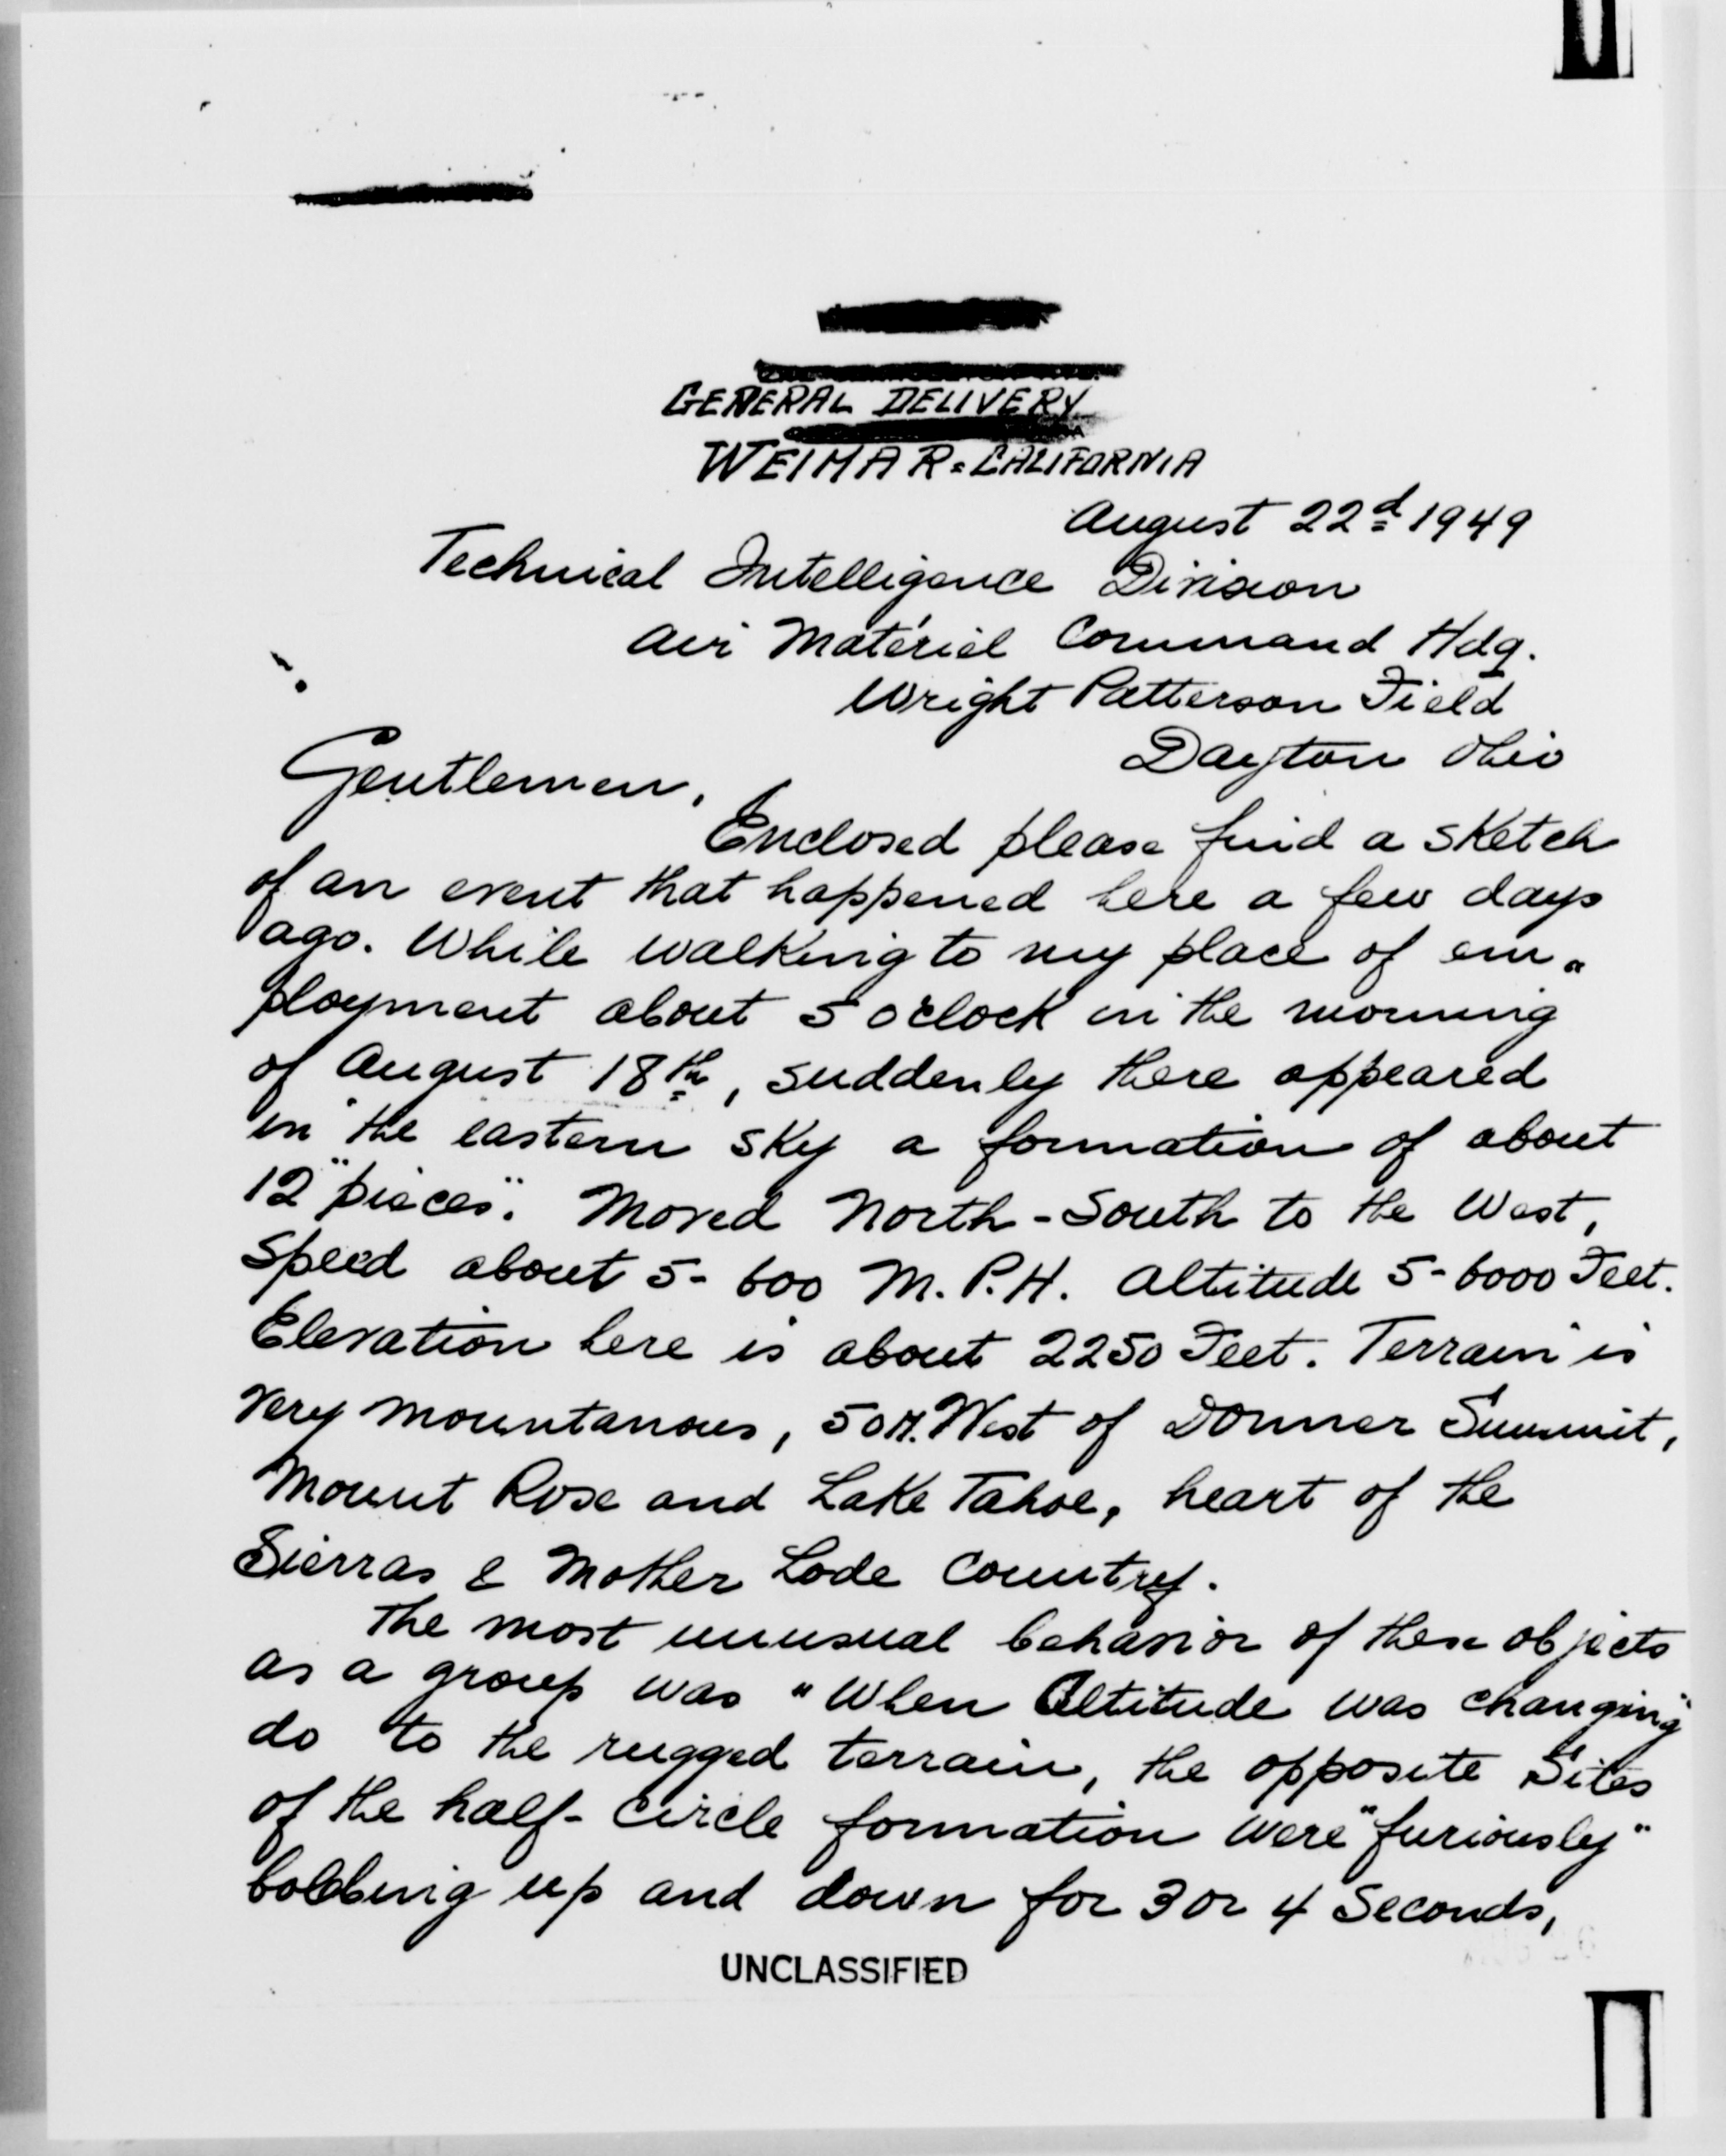 GENERAL DELIVERY
WEIMAR = CALIFORNIA
August 22d 1949
Technical Intelligence Division
Air Matériel Command Hdq.
Wright Patterson Field
Dayton Ohio
Gentlemen,
Enclosed please find a sketch
of an event that happened here a few days
ago. While walking to my place of em=
ployment about 5 o'clock in the morning
of August 18th, suddenly there appeared
in the eastern sky a formation of about
12 "pieces". Moved North-South to the West,
Speed about 5-600 M.P.H. Altitude 5-6000 Feet.
Elevation here is about 2250 Feet. Terrain is
very mountanous, 50 M. West of Donner Summit,
Mount Rose and Lake Tahoe, heart of the
Sierras & Mother Lode Country.
The most unusual behavior of these objects
as a group was "When Altitude was changing"
do to the rugged terrain, the opposite Sites
of the half-circle formation were "furiously"
bobbing up and down for 3 or 4 Seconds,
UNCLASSIFIED